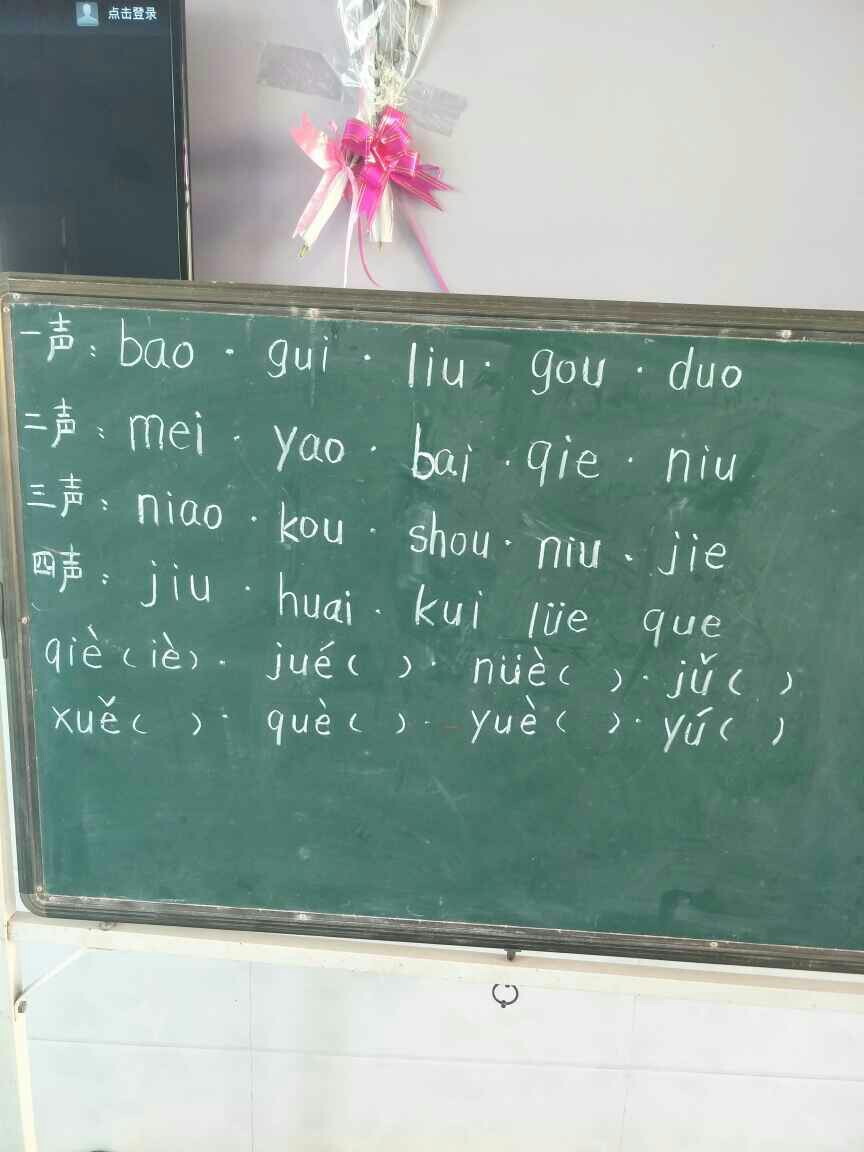 点击登录
一声：bao · gui · liu · gou · duo
二声：mei · yao · bai · qie · niu
三声：niao · kou · shou · niu · jie
四声：jiu · huai · kui lüe que
qiè（iè）· jué（ ）· nüè（ ）· jǔ（ ）
xuě（ ）· què（ ）· yuè（ ）· yú（ ）